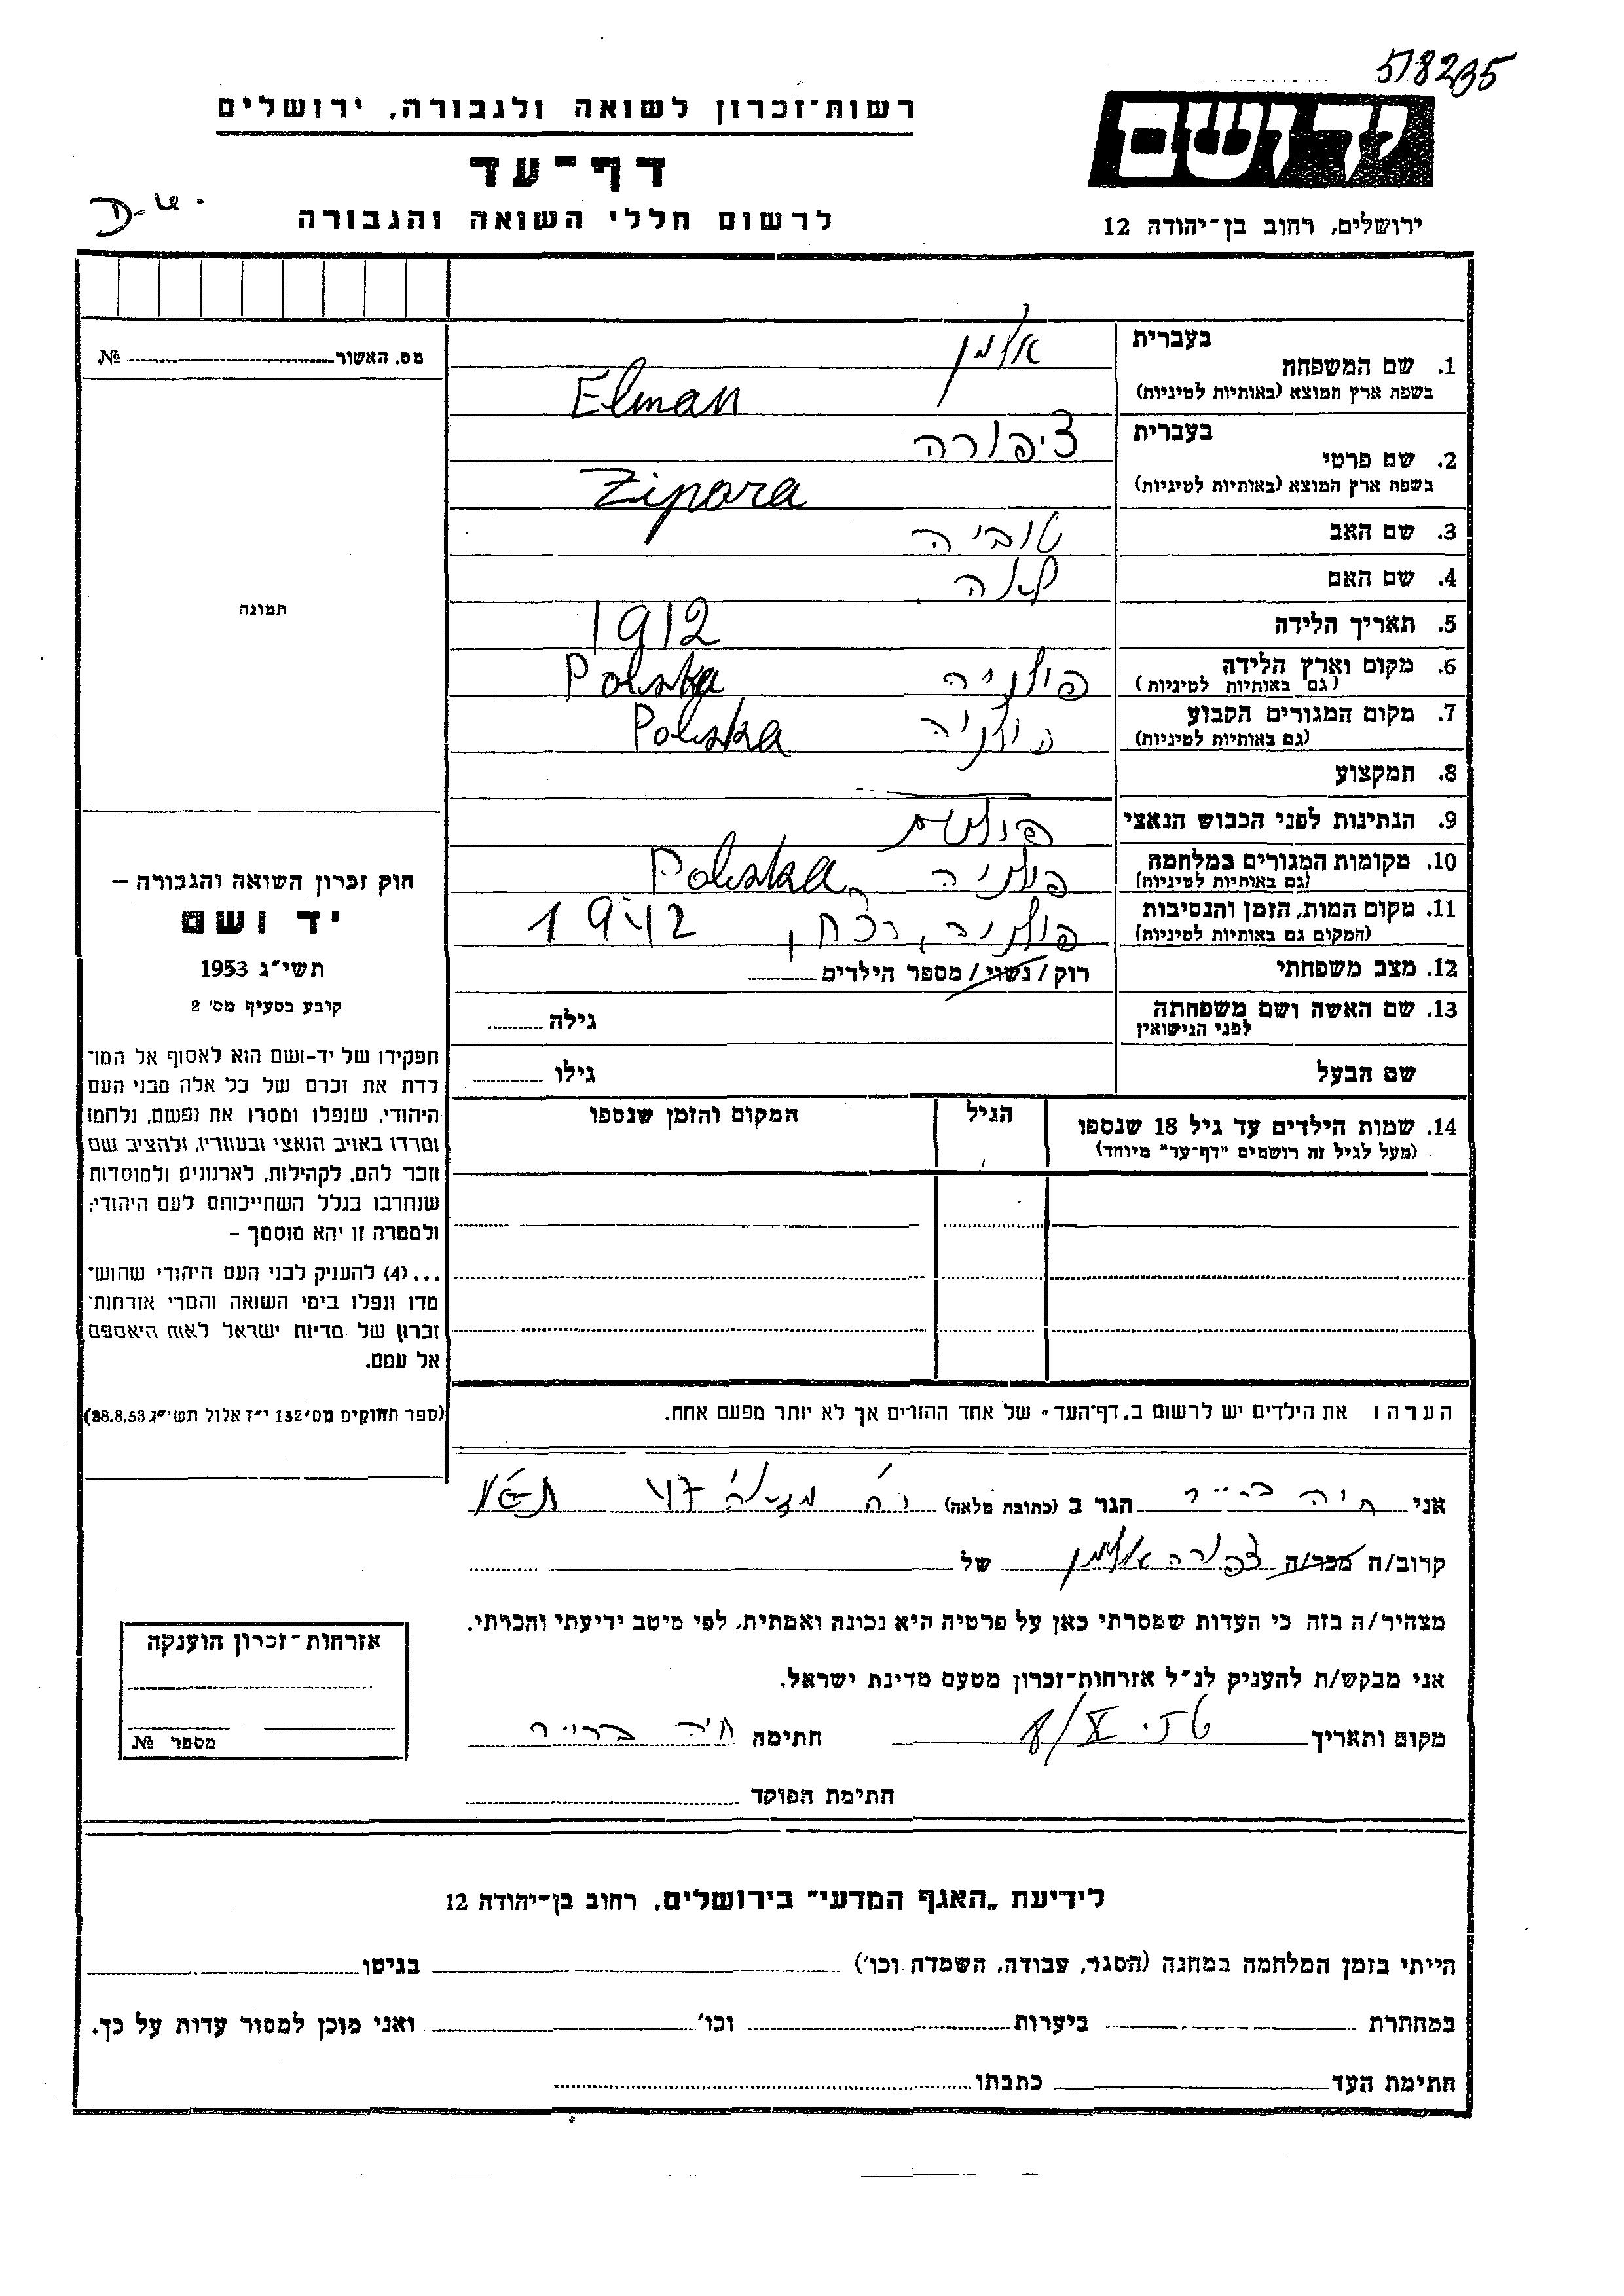 518235
ידושם
ירושלים, רחוב בן־יהודה 12
רשות־זכרון לשואה ולגבורה, ירושלים
דף־עד
לרשום חללי השואה והגבורה
מס. האשור № 
1. שם המשפחה בעברית אלמן
בשפת ארץ המוצא (באותיות לטיניות) Elman
2. שם פרטי בעברית ציפורה
בשפת ארץ המוצא (באותיות לטיניות) Zipora
3. שם האב טוביה
4. שם האם לאה
5. תאריך הלידה 1912
6. מקום וארץ הלידה (גם באותיות לטיניות) פולניה Polska
7. מקום המגורים הקבוע (גם באותיות לטיניות) פולניה Polska
8. המקצוע
9. הנתינות לפני הכבוש הנאצי פולנית
10. מקומות המגורים במלחמה (גם באותיות לטיניות) פולניה Polska
11. מקום המות, הזמן והנסיבות (המקום גם באותיות לטיניות) פולניה, 1942
12. מצב משפחתי רוק / נשוי / מספר הילדים
13. שם האשה ושם משפחתה לפני הנישואין גילה
שם הבעל גילו
14. שמות הילדים עד גיל 18 שנספו הגיל המקום והזמן שנספו
(מעל לגיל זה רושמים "דף־עד" מיוחד)
הערה: את הילדים יש לרשום ב„דף־העד" של אחד ההורים אך לא יותר מפעם אחת.
תמונה
חוק זכרון השואה והגבורה –
יד ושם
תשי"ג 1953
קובע בסעיף מס' 2
תפקידו של יד-ושם הוא לאסוף אל המו־
לדת את זכרם של כל אלה מבני העם
היהודי, שנפלו ומסרו את נפשם, נלחמו
ומרדו באויב הנאצי ובעוזריו, ולהציב שם
וזכר להם, לקהילות, לארגונים ולמוסדות
שנחרבו בגלל השתייכותם לעם היהודי;
ולמטרה זו יהא מוסמך –
...(4) להעניק לבני העם היהודי שהוש־
מדו ונפלו בימי השואה והמרי אזרחות־
זכרון של מדינת ישראל לאות היאספם
אל עמם.
(ספר החוקים מס' 132 י"ז אלול תשי"ג 28.8.53)
אני חיה הגר ב (כתובת מלאה) 47
קרוב/ה מכר/ה צפורה אלמן של
מצהיר/ה בזה כי העדות שמסרתי כאן על פרטיה היא נכונה ואמתית, לפי מיטב ידיעתי והכרתי.
אני מבקש/ת להעניק לנ"ל אזרחות־זכרון מטעם מדינת ישראל.
מקום ותאריך 8/X חתימה חיה
חתימת הפוקד
אזרחות־זכרון הוענקה
מספר №
לידיעת „האגף המדעי" בירושלים, רחוב בן־יהודה 12
הייתי בזמן המלחמה במחנה (הסגר, עבודה, השמדה וכו') בגיטו
במחתרת ביערות וכו' ואני מוכן למסור עדות על כך.
חתימת העד כתבתו